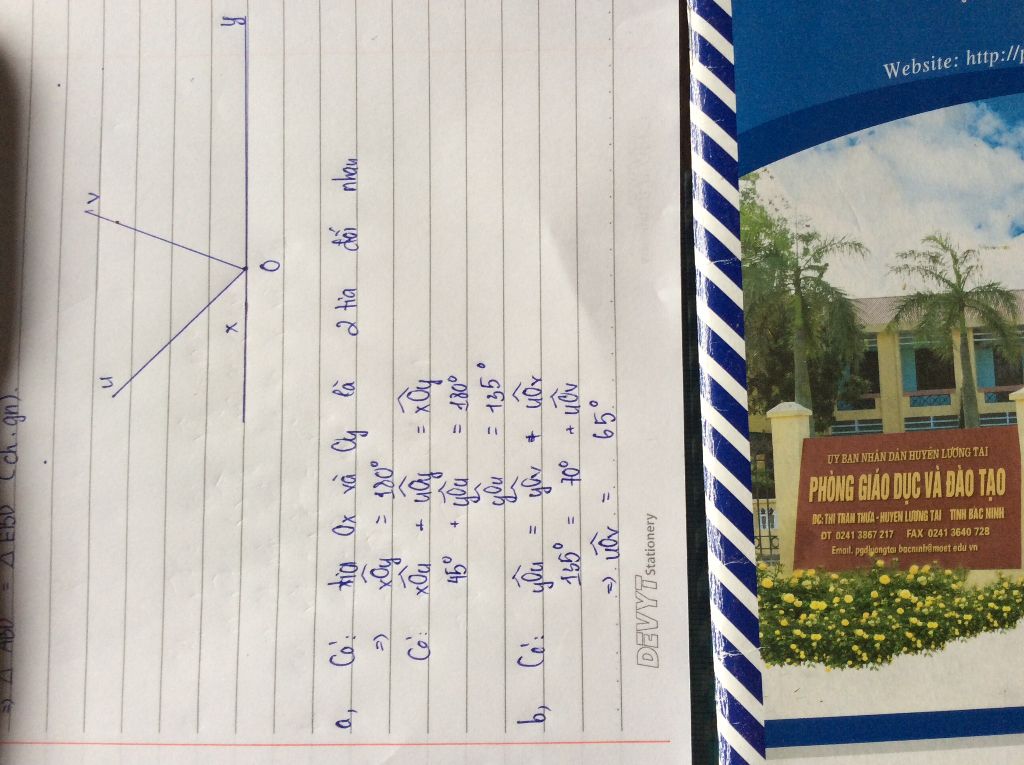 => Δ ABD = Δ EBD (ch.gn).
u
v
x
O
y
a, Có: tia Ox và Oy là 2 tia đối nhau
=> xOy = 180°
Có: xOu + uOy = xOy
45° + yOu = 180°
yOu = 135°
b, Có: yOu = yOv + uOv
135° = 70° + uOv
=> uOv = 65°
DEVYT Stationery
Website: http://p
UY BAN NHÂN DÂN HUYỆN LƯƠNG TÀI
PHÒNG GIÁO DỤC VÀ ĐÀO TẠO
ĐC: THỊ TRẤN THỨA - HUYỆN LƯƠNG TÀI TỈNH BẮC NINH
ĐT 0241 3867 217 FAX 0241 3640 728
Email. pgdluongtai bacninh@moet edu vn